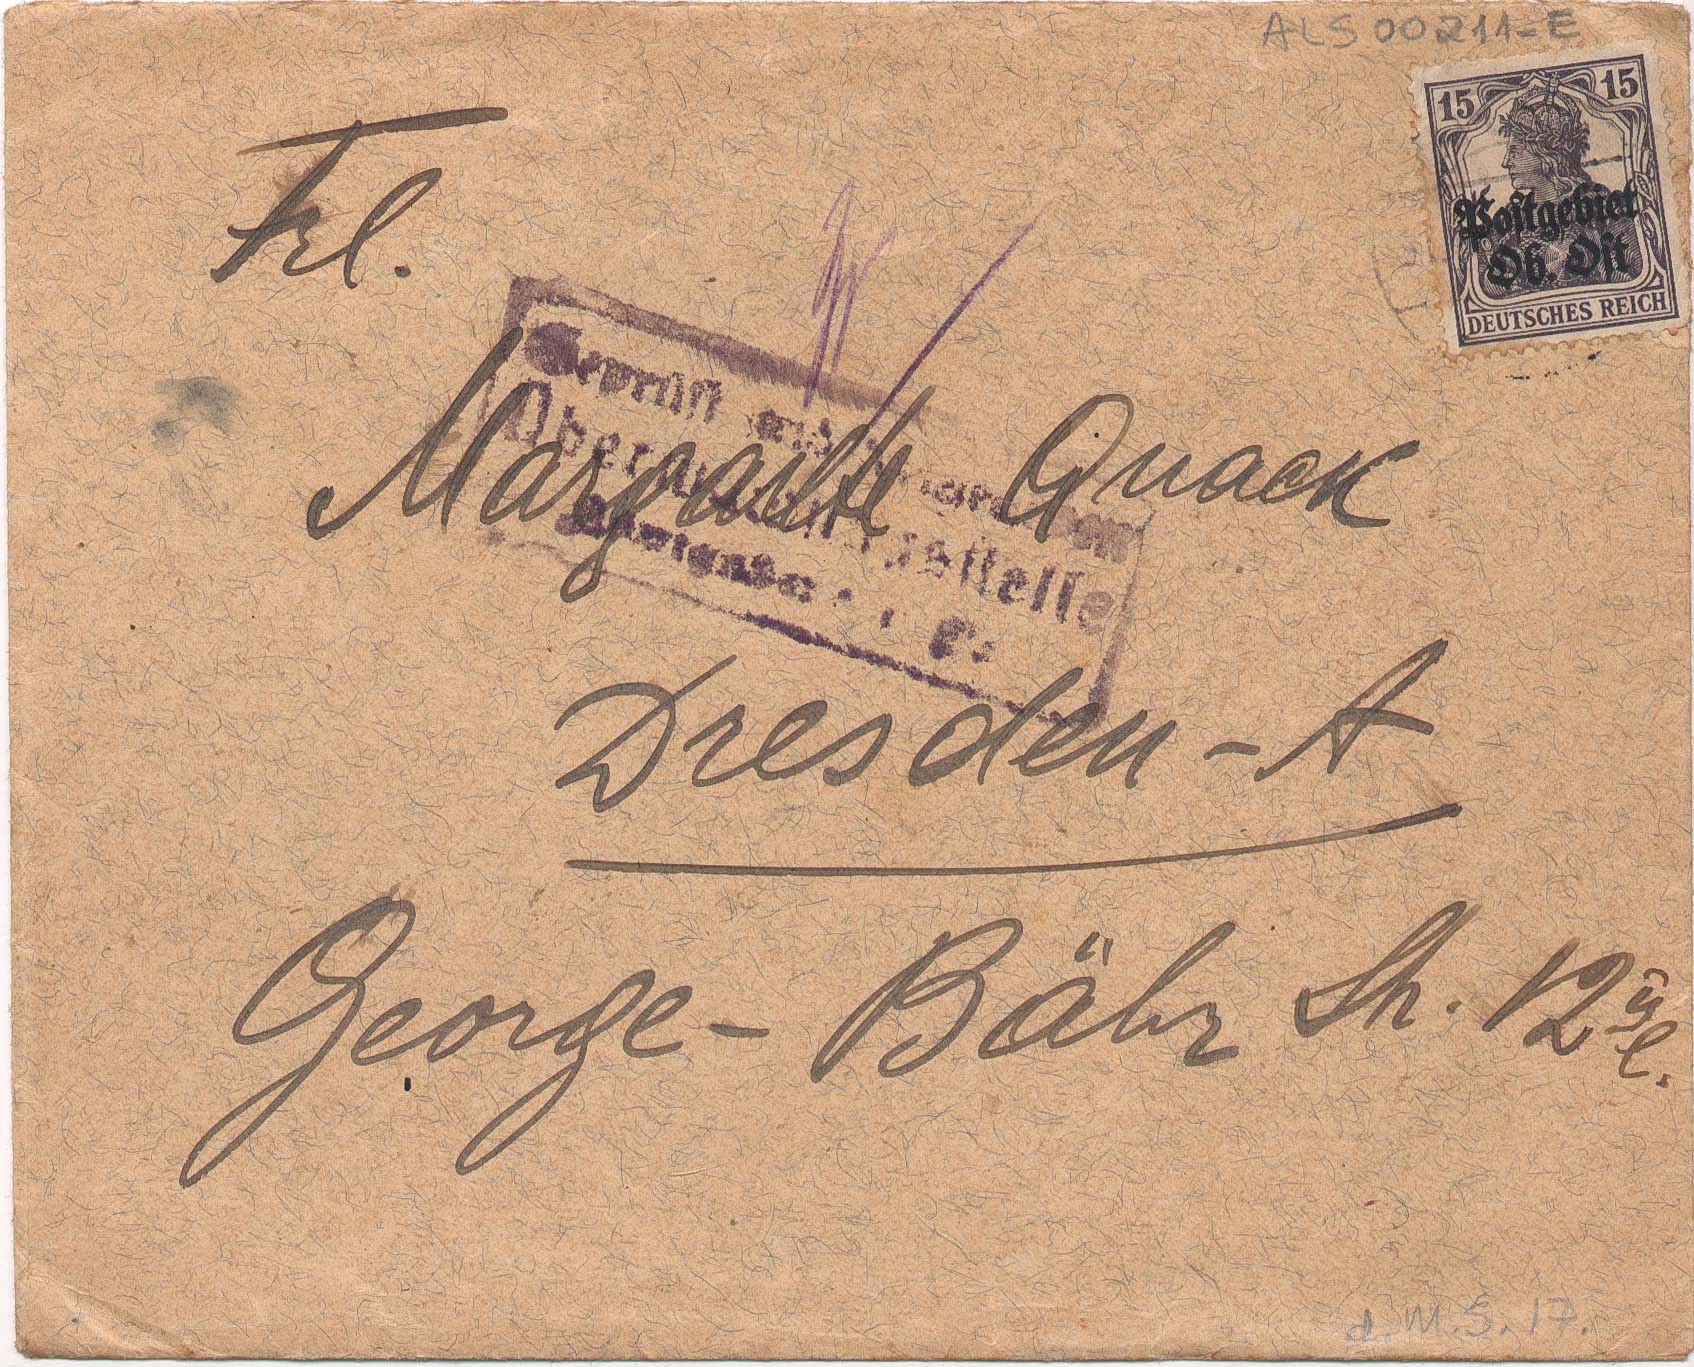 ALS 00211-E
15 15
Postgebiet
Ob. Ost
DEUTSCHES REICH
Frl.
Geprüft und
Margarite Quack
Dresden-A
George-Bähr Str. 12
d. M. S. 17.